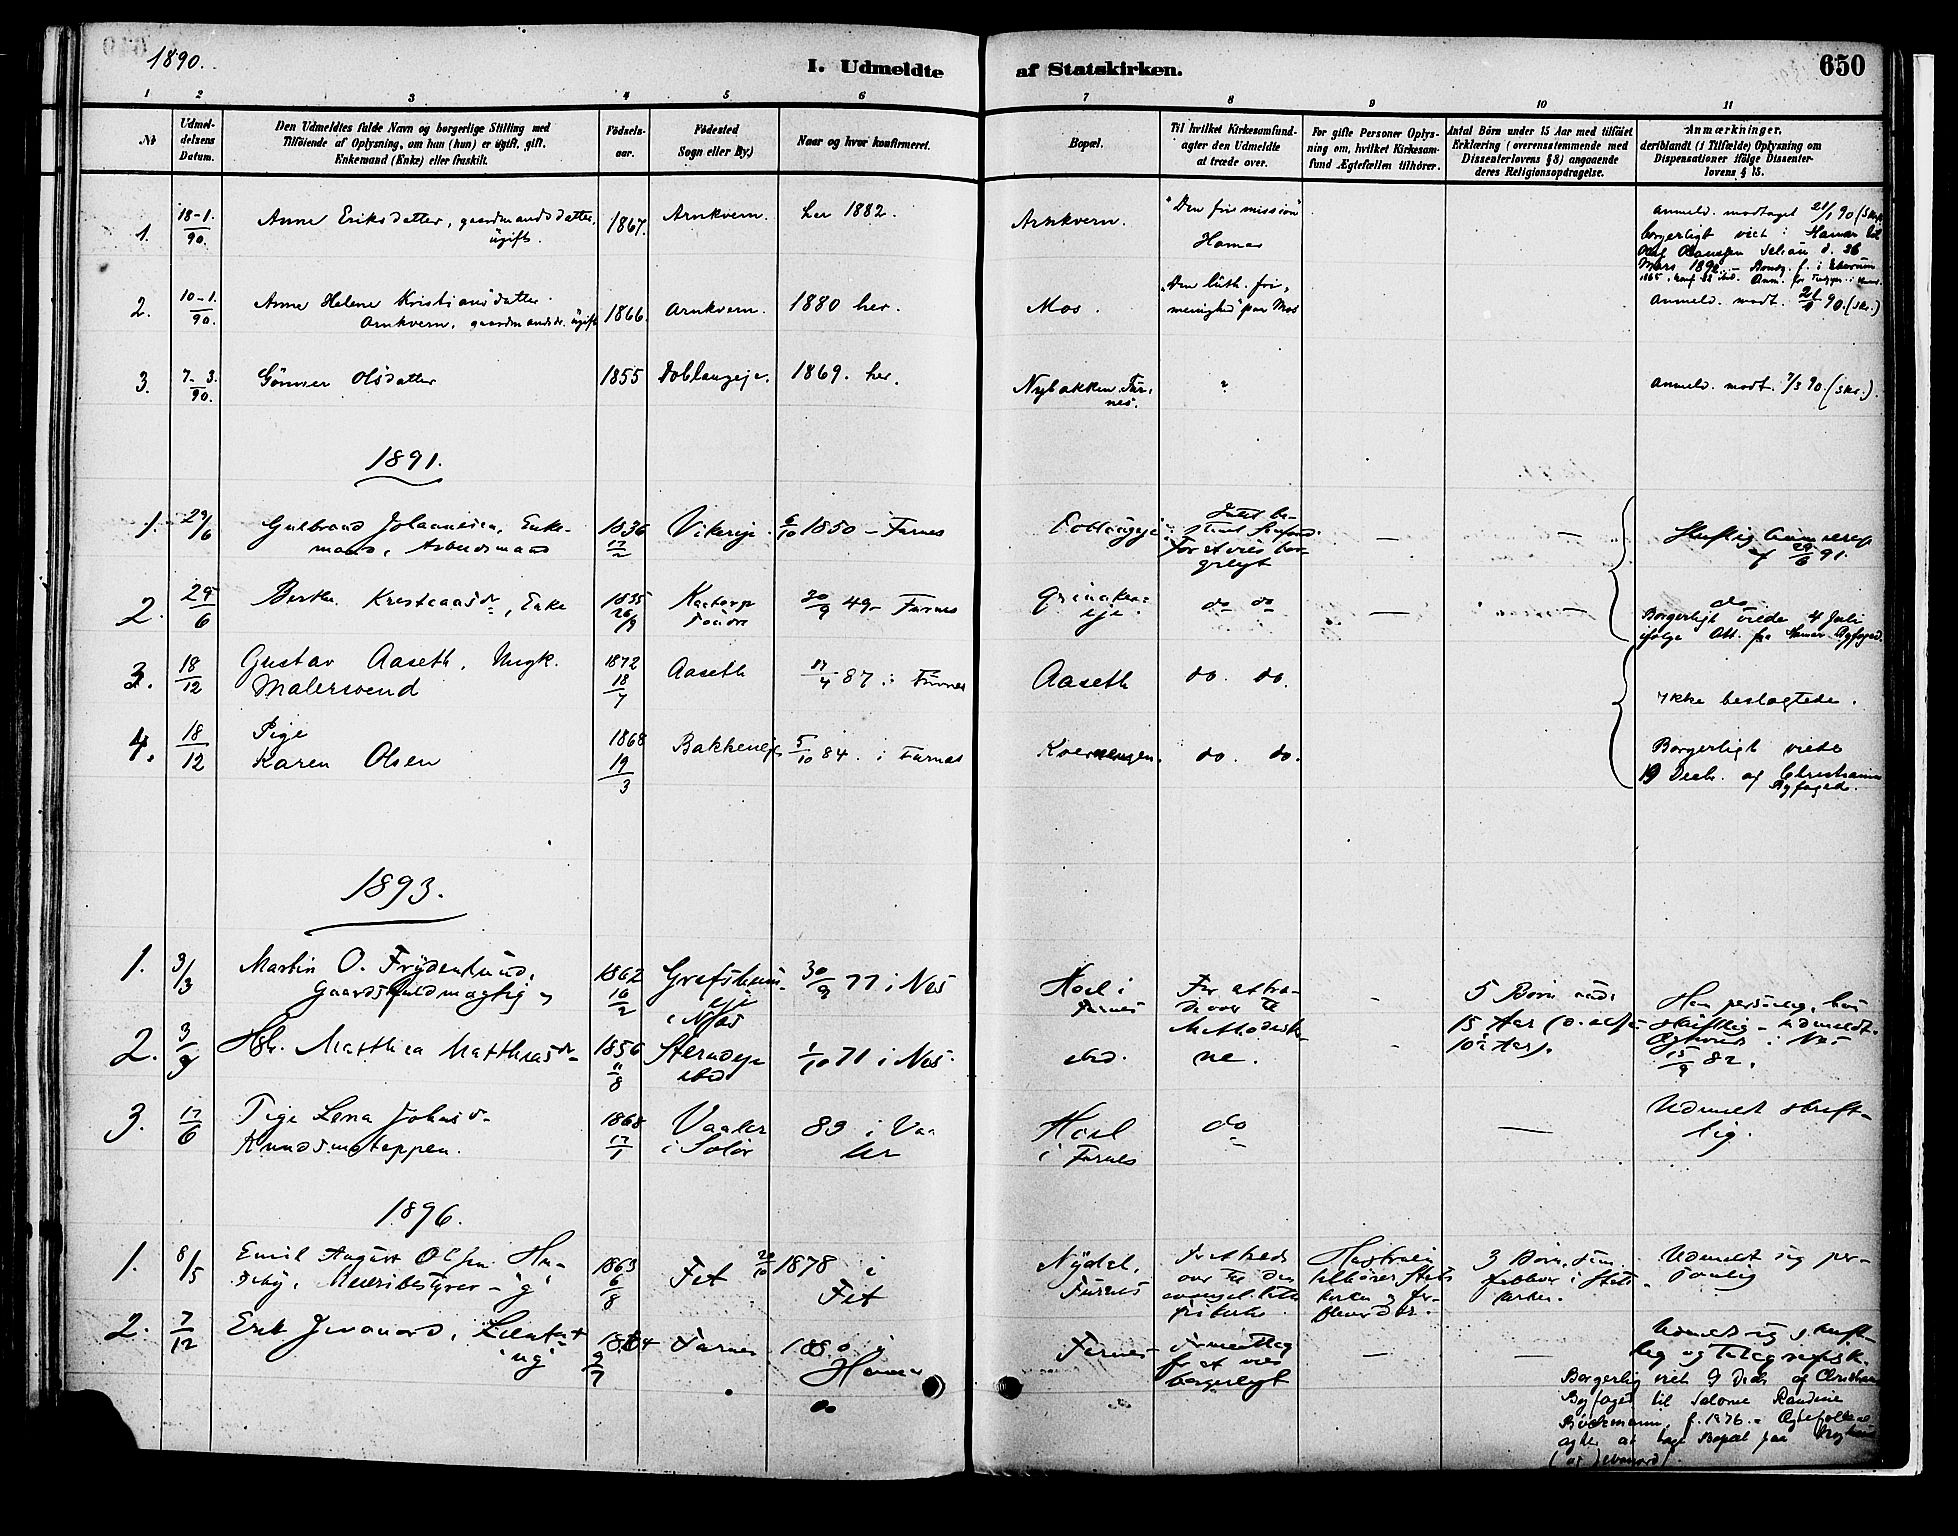 1890.
I. Udmeldte af Statskirken.
650
1 2 3 4 5 6 7 8 9 10 11
No
Udmel-
delsens
Datum.
Den Udmeldtes fulde Navn og borgerlige Stilling med
Tilføiende af Oplysning, om han (hun) er ugift, gift,
Enkemand (Enke) eller fraskilt.
Fødsels-
aar.
Fødested
Sogn eller By.)
Naar og hvor konfirmeret.
Bopæl.
Til hvilket Kirkesamfund-
agter den Udmeldte
at træde over.
For gifte Personer Oplys-
ning om, hvilket Kirkesam-
fund Ægtefællen tilhører.
Antal Børn under 15 Aar med tilføiet
Erklæring (overensstemmende med
Dissenterlovens § 8) angaaende
deres Religionsopdragelse.
Anmærkninger,
deriblandt (i Tilfælde) Oplysning om
Dispensationer ifølge Dissenter-
lovens § 15.
1. 18-1. 90. Anne Eriksdatter, gaardmandsdatter, ugift. 1867. Arnkvern. her 1882. Arnkvern. "Den fri mission" Hamar
anmeld. modtaget 21/1 90 (Skr.
borgerligt viet i Hamar til
Mars 1892.
2. 10-1. 90. Anne Helene Kristiansdatter
Arnkvern, gaardmandsdr. ugift 1866. Arnkvern. 1880 her. Mos. "Den luth. fri-
menighed" paa Mos
anmeld. modt. 21/1 90. (skr.)
3. 7-3. 90. Gønner Olsdatter 1855 Doblaugeje. 1869. her. Nybakken Fur-
nes. "
anmeld. modt. 7/3 90. (skr.).
1891.
1. 29/6 Gulbrand Johannesen, Enke-
mand, Arbeidsmand 1836 17/2 Vikereje 6/10 1850 - Furnes Doblaugeje
Intet be-
stemt
For at vies bor-
gerligt
— —
Skriftlig
af 29/6 91.
2. 29/6 Berthe Kristiansdr, Enke 1835 26/9 30/9 49 - Furnes
eje do do — —
do
Borgerligt viede 4 Juli
ifølge Att. fra Hamar Byfoged.
3. 18/12 Gustav Aaseth, Ungk.
Malersvend 1872 18/7 Aaseth 87 i Furnes Aaseth do. do.
Ikke beslægtede.
4. 18/12 Pige
Karen Olsen 1868 19/3 Bakkeneje 5/10 84. i Furnes do. do.
Borgerligt viede
19 Decbr. af Christiania
Byfoged.
1893.
1. 3/3 Martin O. Frydenlund,
Gaardsfuldmægtig og 1862 16/2 Grefsheim-
eje
i Næs 30/9 77 i Nes Hoel i
Furnes For at træ-
de over til
Methodister-
5 Børn und.
15 Aar
2. 3/3 Hst. Matthea Matthiasdr 1856 11/8
ebd 1/10 71 i Nes. ebd. ne. -
15/9 82.
3. 17/6 Pige Lena Johnsdr
1868 17/1 Vaaler
i Solør 83 i Vaa-
ler Hoel
i Furnes do —
Udmeldt skrift-
lig.
1896.
1. 8/5 Emil August Olsen
Meieribestyrer - g 1863 6/8 Fet 20/10 1878 i
Fet Nydal,
Furnes For at træde
over til den
evangel. luth
frikirke
Hustruen
tilhører Stats
kirken
3 Børn,
i Stats-
kirken.
Udmeldt sig per-
sonlig
2. 7/12 Erik
ug 1864 9/7 Furnes 1880 i
Hamar Furnes
for at vies
borgerligt — —
Udmeldt sig skrift-
lig og telegrafisk.
Borgerlig viet 9 Decbr af Christiania
Byfoged til Salome Randine
f. 1876.
agter at tage Bopæl paa